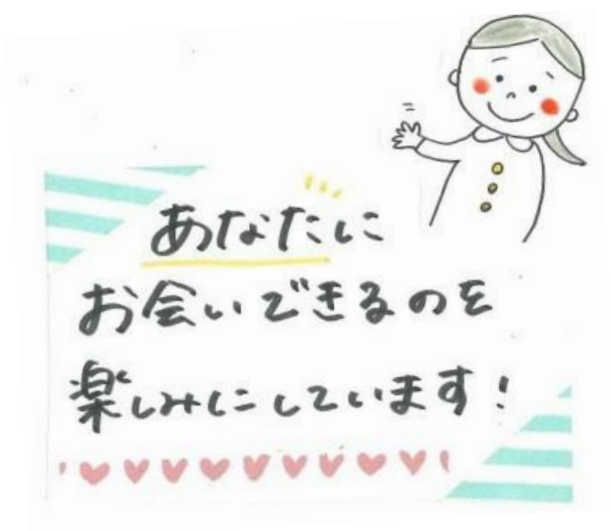 あなたに
お会いできるのを
楽しみにしています！